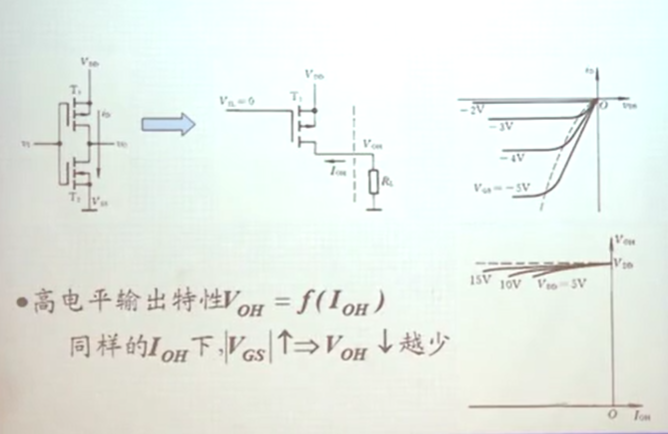 V_DD
T₁
i_D
v_I
v_O
T₂
V_SS
V_IL=0
V_DD
T₁
V_OH
I_OH
R_L
i_D
O
v_DS
-2V
-3V
-4V
V_GS=-5V
V_OH
V_DD
15V 10V V_DD=5V
O
I_OH
•高电平输出特性V_OH = f(I_OH)
同样的I_OH下,|V_GS|↑⇒V_OH↓越少